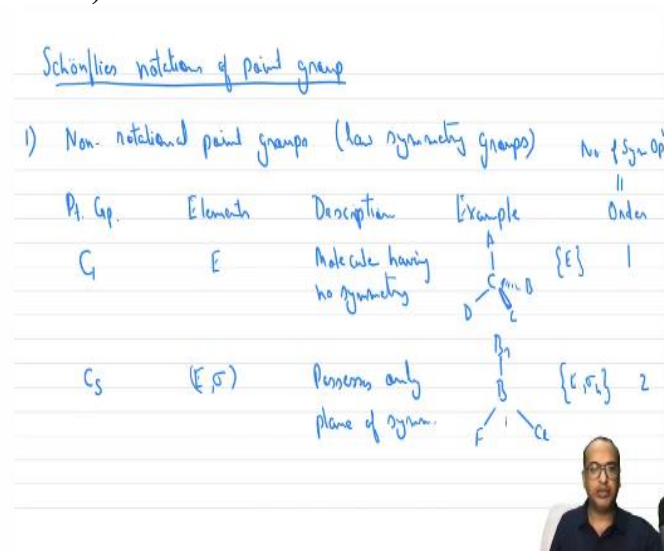 Schönflies notations of point group
1) Non-rotational point groups (low symmetry groups) No of Sym Opⁿ
Pt. Gp. Elements Description Example Order
C₁ E Molecule having no symmetry A C B D C {E} 1
Cs (E, σ) Possesses only plane of symm. Br B F Cl {E, σh} 2